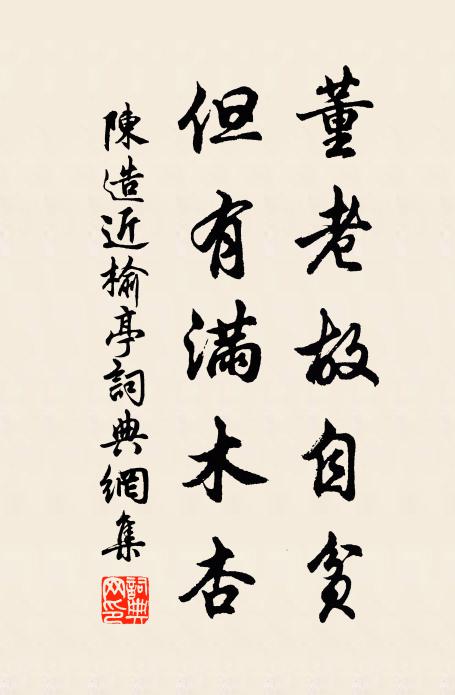 董老故自貧
但有滿木杏
陳造近榆亭詞典網集
詞典網印